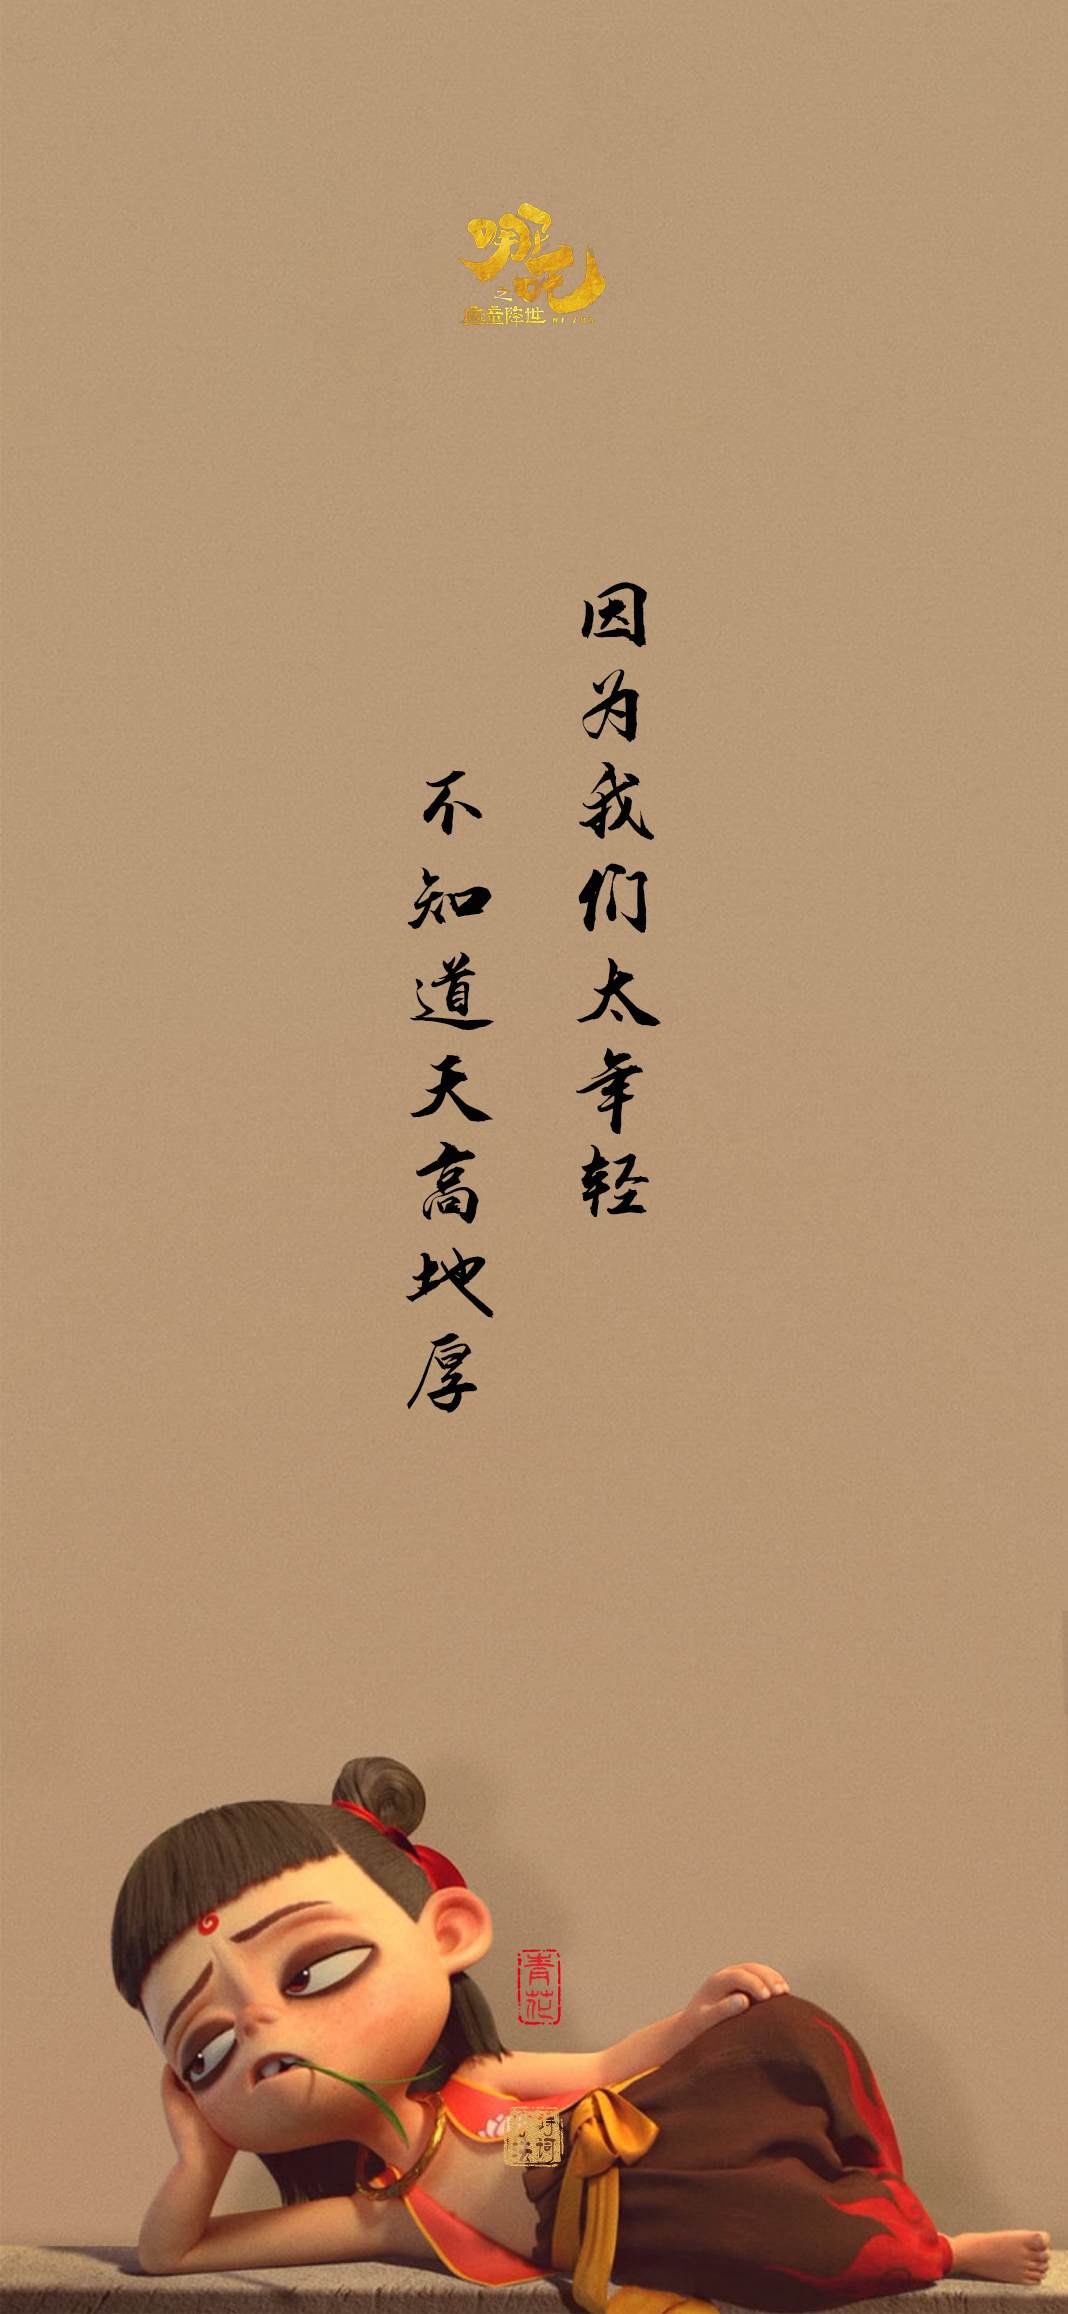 哪吒
之
魔童降世
因为我们太年轻
不知道天高地厚
青花
诗词